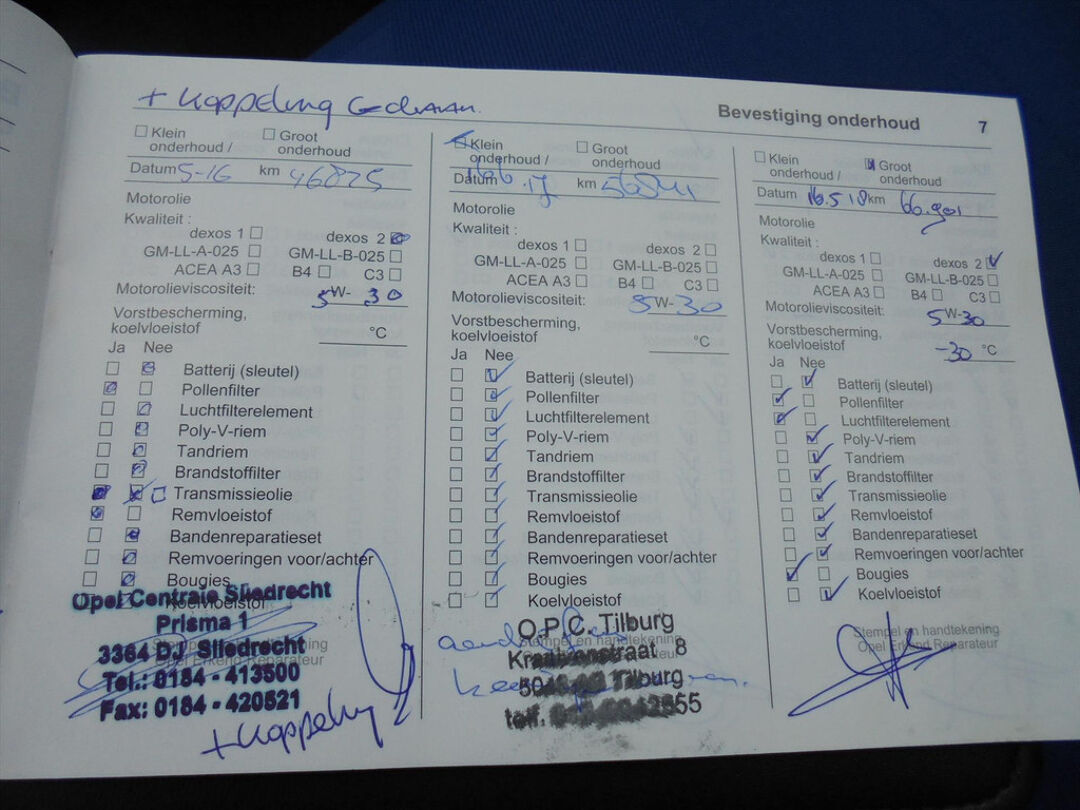 + Koppeling Gedaan.
Bevestiging onderhoud 7
Klein onderhoud / Groot onderhoud
Datum 5-16 km 46825
Motorolie
Kwaliteit :
dexos 1 dexos 2
GM-LL-A-025 GM-LL-B-025
ACEA A3 B4 C3
Motorolieviscositeit: 5W-30
Vorstbescherming,
koelvloeistof °C
Ja Nee
Batterij (sleutel)
Pollenfilter
Luchtfilterelement
Poly-V-riem
Tandriem
Brandstoffilter
Transmissieolie
Remvloeistof
Bandenreparatieset
Remvoeringen voor/achter
Bougies
Koelvloeistof
Opel Centrale Sliedrecht
Prisma 1
3364 DJ Sliedrecht
Tel.: 0184 - 413500
Fax: 0184 - 420521
Stempel en handtekening
Opel Erkend Reparateur
+ Koppeling
Klein onderhoud / Groot onderhoud
Datum km
Motorolie
Kwaliteit :
dexos 1 dexos 2
GM-LL-A-025 GM-LL-B-025
ACEA A3 B4 C3
Motorolieviscositeit: 5W-30
Vorstbescherming,
koelvloeistof °C
Ja Nee
Batterij (sleutel)
Pollenfilter
Luchtfilterelement
Poly-V-riem
Tandriem
Brandstoffilter
Transmissieolie
Remvloeistof
Bandenreparatieset
Remvoeringen voor/achter
Bougies
Koelvloeistof
O.P.C. Tilburg
Stempel en handtekening
8
Tilburg
telf.
Klein onderhoud / Groot onderhoud
Datum 16.5 18 km 66.901
Motorolie
Kwaliteit :
dexos 1 dexos 2
GM-LL-A-025 GM-LL-B-025
ACEA A3 B4 C3
Motorolieviscositeit: 5W-30
Vorstbescherming,
koelvloeistof -30 °C
Ja Nee
Batterij (sleutel)
Pollenfilter
Luchtfilterelement
Poly-V-riem
Tandriem
Brandstoffilter
Transmissieolie
Remvloeistof
Bandenreparatieset
Remvoeringen voor/achter
Bougies
Koelvloeistof
Stempel en handtekening
Opel Erkend Reparateur